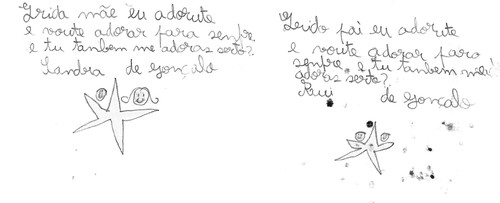 Qrida mãe eu adorute
e voute adorar para senpre.
e tu tanbem me adoras serto?
Sandra de Gonçalo
Qerido pai eu adorute
e voute adorar paro
senpre. e tu tanbem me
adoras serto?
Rui
de Gonçalo